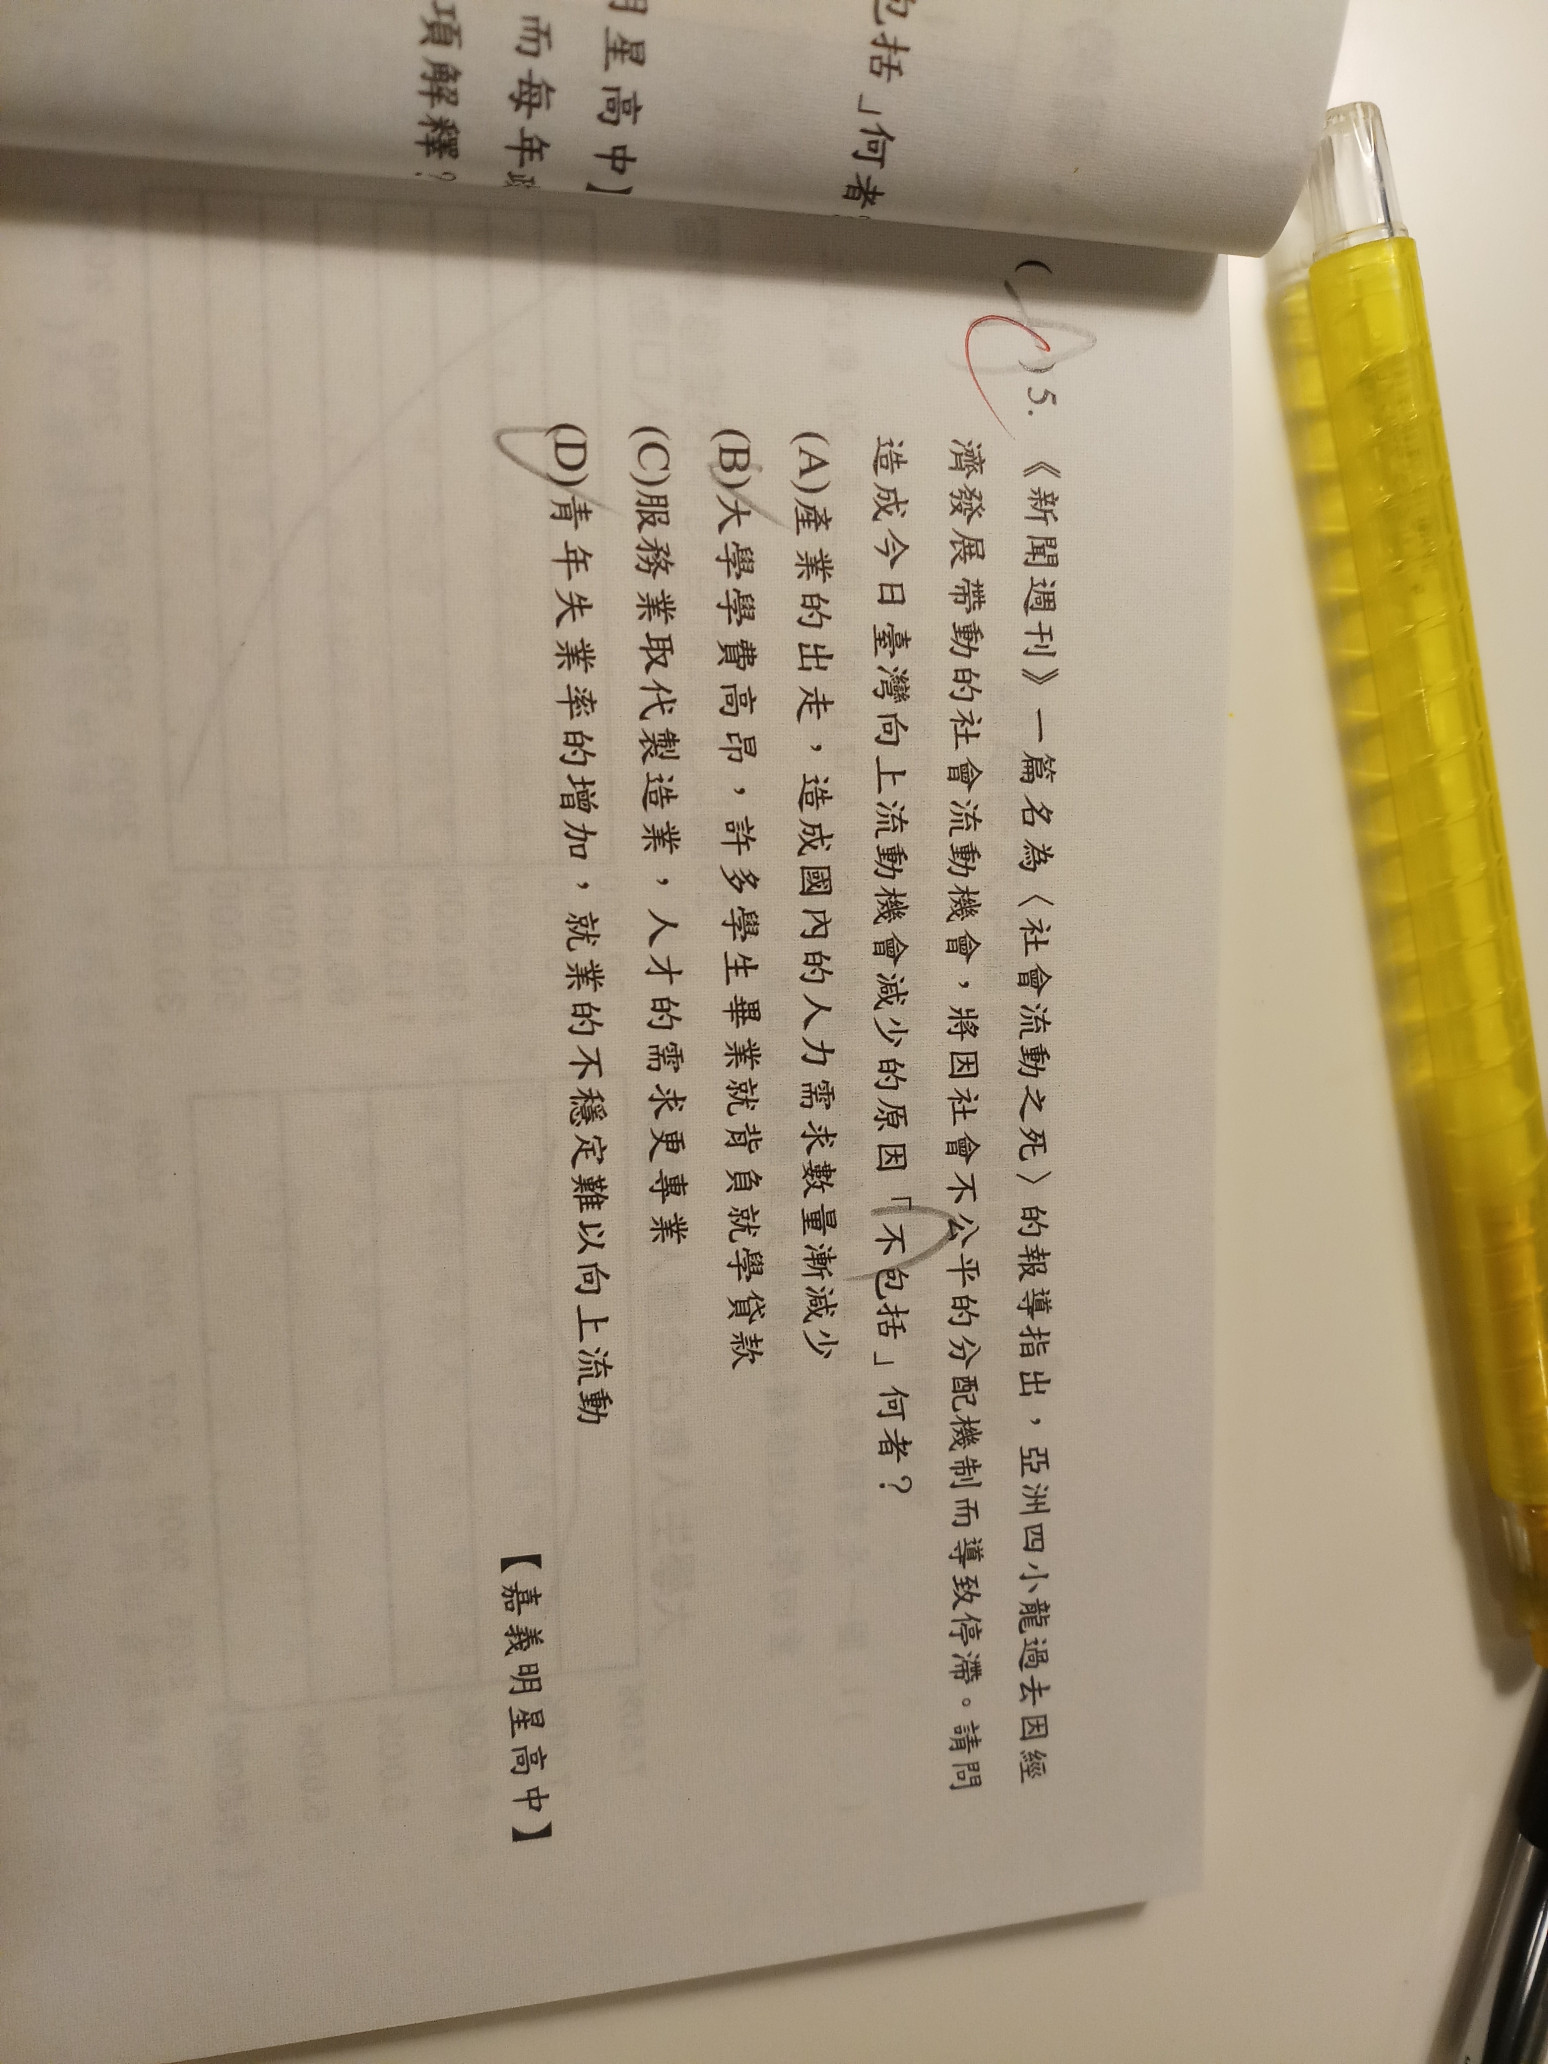 包括」何者?
明星高中】
而每年
項解釋?
( )5.《新聞週刊》一篇名為〈社會流動之死〉的報導指出，亞洲四小龍過去因經
濟發展帶動的社會流動機會，將因社會不公平的分配機制而導致停滯。請問
造成今日臺灣向上流動機會減少的原因「不包括」何者?
(A)產業的出走，造成國內的人力需求數量漸減少
(B)大學學費高昂，許多學生畢業就背負就學貸款
(C)服務業取代製造業，人才的需求更專業
(D)青年失業率的增加，就業的不穩定難以向上流動
【嘉義明星高中】